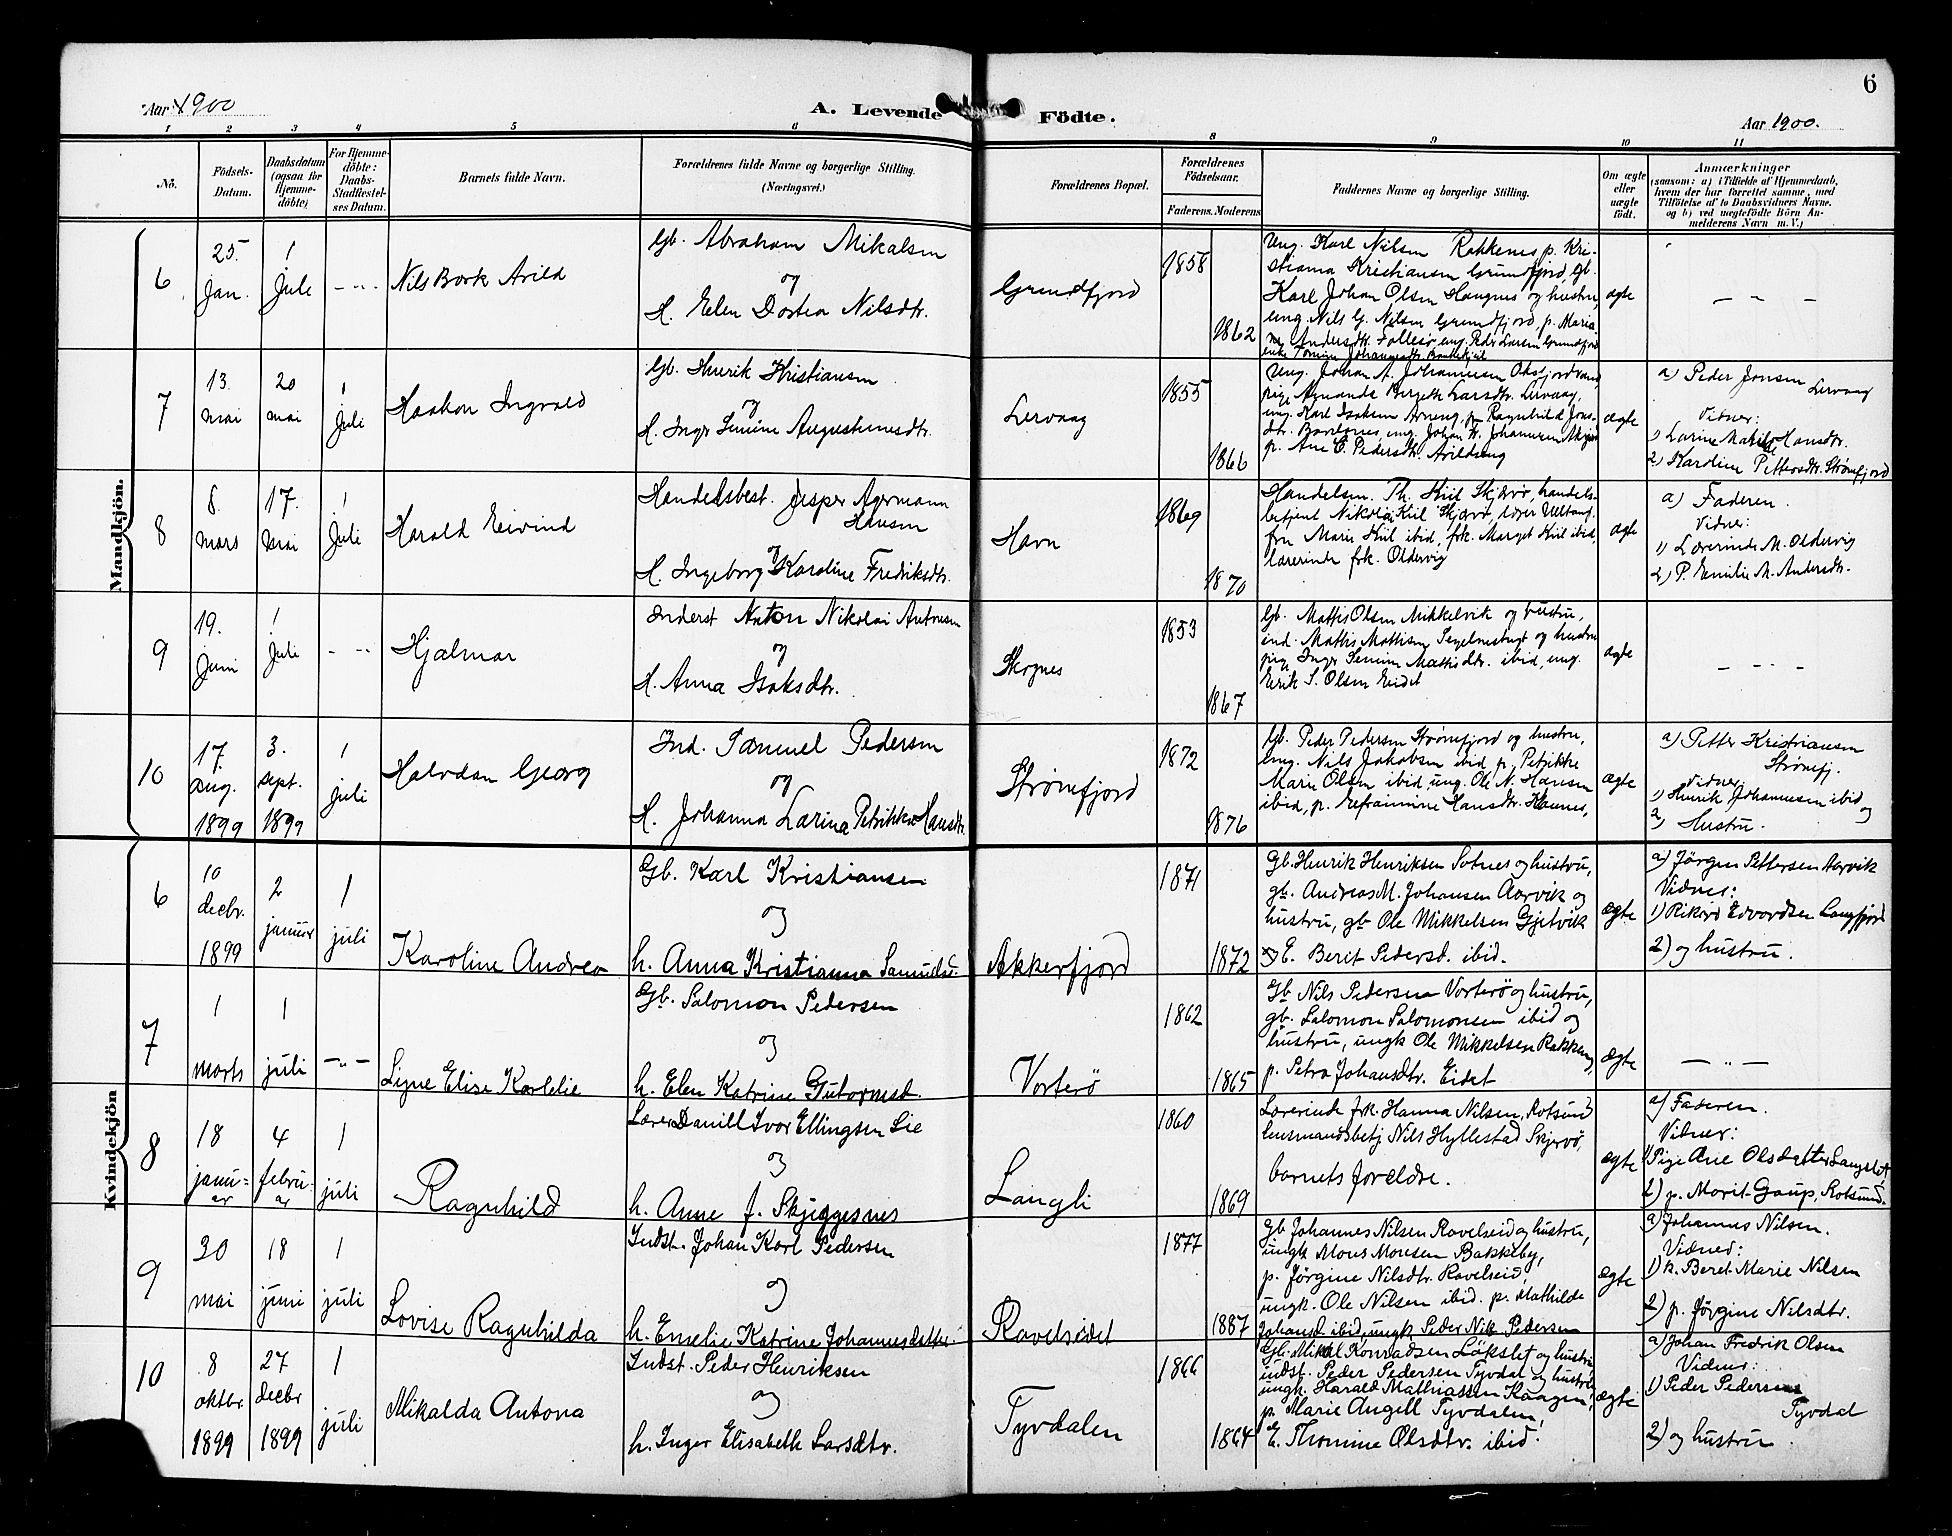 Aar 1900
A. Levende Födte.
Aar 1900.
6
1 2 3 4 5 6 8 9 10 11
No.
Födsels-Datum.
Daabsdatum (ogsaa för Hjemme-döbte)
For Hjemme-döbte: Daabs-Stadfæstelses Datum.
Barnets fulde Navn.
Forældrenes fulde Navne og borgerlige Stilling. (Næringsvei.)
Forældrenes Bopæl.
Forældrenes Födselsaar.
Faderens. Moderens
Faddernes Navne og borgerlige Stilling.
Om ægte eller uægte födt.
Anmærkninger
(saasom: a) i Tilfælde af Hjemmedaab, hvem der har forrettet samme, med Tilföielse af to Daabsvidners Navne. og b) ved uægtefödte Börn Anmelderens Navn m. V.)
Mandkjön.
6
25. Jan.
1 Juli
- " -
Nils Bork Arild
Gb. Abraham Mikalsen
og
H. Elen Dortea Nilsdtr.
Grundfjord
1858
1862
Ung. Karl Nilsen Rakkenes, p. Kri-
stiania Kristiansen Grundfjord, Gb.
Karl Johan Olsen Haugnes og hustru,
ung. Nils G. Nilsen Grundfjord, p. Maria-
ægte
- " -
7
13. mai
20 mai
1 Juli
Haakon Ingvald
Gb. Henrik Kristiansen
og
H. Inger Semine Augustinusdtr.
Lervaag
1855
1866
Ung. Johan A. Johannesen
pige Amanda Bergete Larsdtr. Lervaag,
ung. Karl Isaksen p. Ragnhild Jons-
p. Ane O. Pedersdtr. Arildeng
ægte
a) Peder Jonsen Lervaag
Vidner:
1) Larine Hansdtr.
2) Karoline Pettersdtr. Strømfjord
8
8. mars
17. mai
1 Juli
Harald Eivind
Handelsbest. Jesper Agermann
Hansen
og
H. Ingeborg Karoline Fredriksdtr.
Havn
1869
1870
Handelsm. Th. Kiil Skjærvø, handels-
betjent Nikolai Kiil Skjærvø
fru Marie Kiil ibid, frk. Marget Kiil ibid,
lærerinde frk. Oldervig
ægte
a) Faderen.
Vidner:
1) Lærerinde M. Oldervig
2) P. Emilie M. Andersdtr.
9
19. Juni
1 Juli
- " -
Hjalmar
Inderst Anton Nikolai Antonsen
og
H. Anna Isaksdtr.
Skognes
1853
1867
Gb. Mattis Olsen Mikkelvik og hustru,
ind. Mattis Mattisen og hustru
pige Inger Mattisdtr. ibid, ung.
Erik S. Olsen Eidet
ægte
- " -
10
17. aug. 1899
3. sept. 1899
1 juli
Halvdan Georg
Ind. Samuel Pedersen
og
H. Johanna Larina Petrikke Hansdtr.
Strømfjord
1872
1876
Gb. Peder Pedersen Strømfjord og hustru,
ung. Nils Jakobsen ibid p. Petrikke
Marie Olsen ibid, ung. Ole N. Hansen
ibid, p. Hansdtr. Havnes,
ægte
a) Petter Kristiansen
Strømfj.
Vidner:
1) Henrik Johannesen ibid og
2) Hustru.
Kvindekjön
6
10 decbr. 1899
2 januar
1 juli
Karoline Andrea
Gb. Karl Kristiansen
og
h. Anna Kristianna Samuelsd.
Akkerfjord
1871
1872
Gb. Henrik Henriksen Sotnes og hustru,
gb. Andreas M. Johansen Aarvik og
hustru, gb Ole Mikkelsen Gjetvik
E. Berit Pedersd. ibid.
ægte
a) Jörgen Pettersen Aarvik
Vidner:
1) Rikard Edvardsen Langfjord
2) og hustru.
7
1 marts
1 juli
- " -
Signe Elise Karlelie
Gb. Salomon Pedersen
og
h. Elen Katrine Gutormsd.
Vorterö
1862
1865
Gb Nils Pedersen Vorterö og hustru,
gb. Salomon Salomonsen ibid og
hustru, ungk Ole Mikkelsen Rakkenes,
p. Petra Johansdtr. Eidet
ægte
- " -
8
18 januar
4 februar
1 juli
Ragnhild
Lærer Daniel Ivar Ellingsen Lie
og
h. Anne J. Skjeggesnes
Langli
1860
1869
Lærerinde frk. Hanna Nilsen, Rotsund
lensmandsbetj Nils Hyllestad Skjervö,
barnets forældre.
ægte
a) Faderen.
Vidner:
1) Pige Ane Olsdatter Langslet,
2) p. Marit Gaup, Rotsund.
9
30 mai
18 juni
1 juli
Lovise Ragnhilda
Indst. Johan Karl Pedersen
og
h. Emelie Katrine Johannesdatter.
Ravelseidet
1877
1887
Gb Johannes Nilsen Ravelseid og hustru,
ungk Mons Monsen Bakkeby,
p. Jörgine Nilsdtr. Ravelseid,
ungk. Ole Nilsen ibid. p. Mathilde
Johansd. ibid, ungk Peder Nik Pedersen
ægte
a) Johannes Nilsen.
Vidner:
1) k. Beret Marie Nilsen
2) p. Jörgine Nilsdtr.
10
8 oktbr. 1899
27 decbr 1899
1 juli
Mikalda Antona
Indst. Peder Henriksen
og
h. Inger Elisabeth Larsdtr.
Tyvdalen
1866
1864
Gb. Mikal Konradsen Lökslet og hustru
indst. Peder Pedersen Tyvdal og hustru
ungk. Harald Mathiassen Kaagen,
p. Marie Angell Tyvdalen,
E. Thomine Olsdtr. ibid.
ægte
a) Johan Fredrik Olsen
Vidner:
1) Peder Pedersen
Tyvdal
2) og hustru.